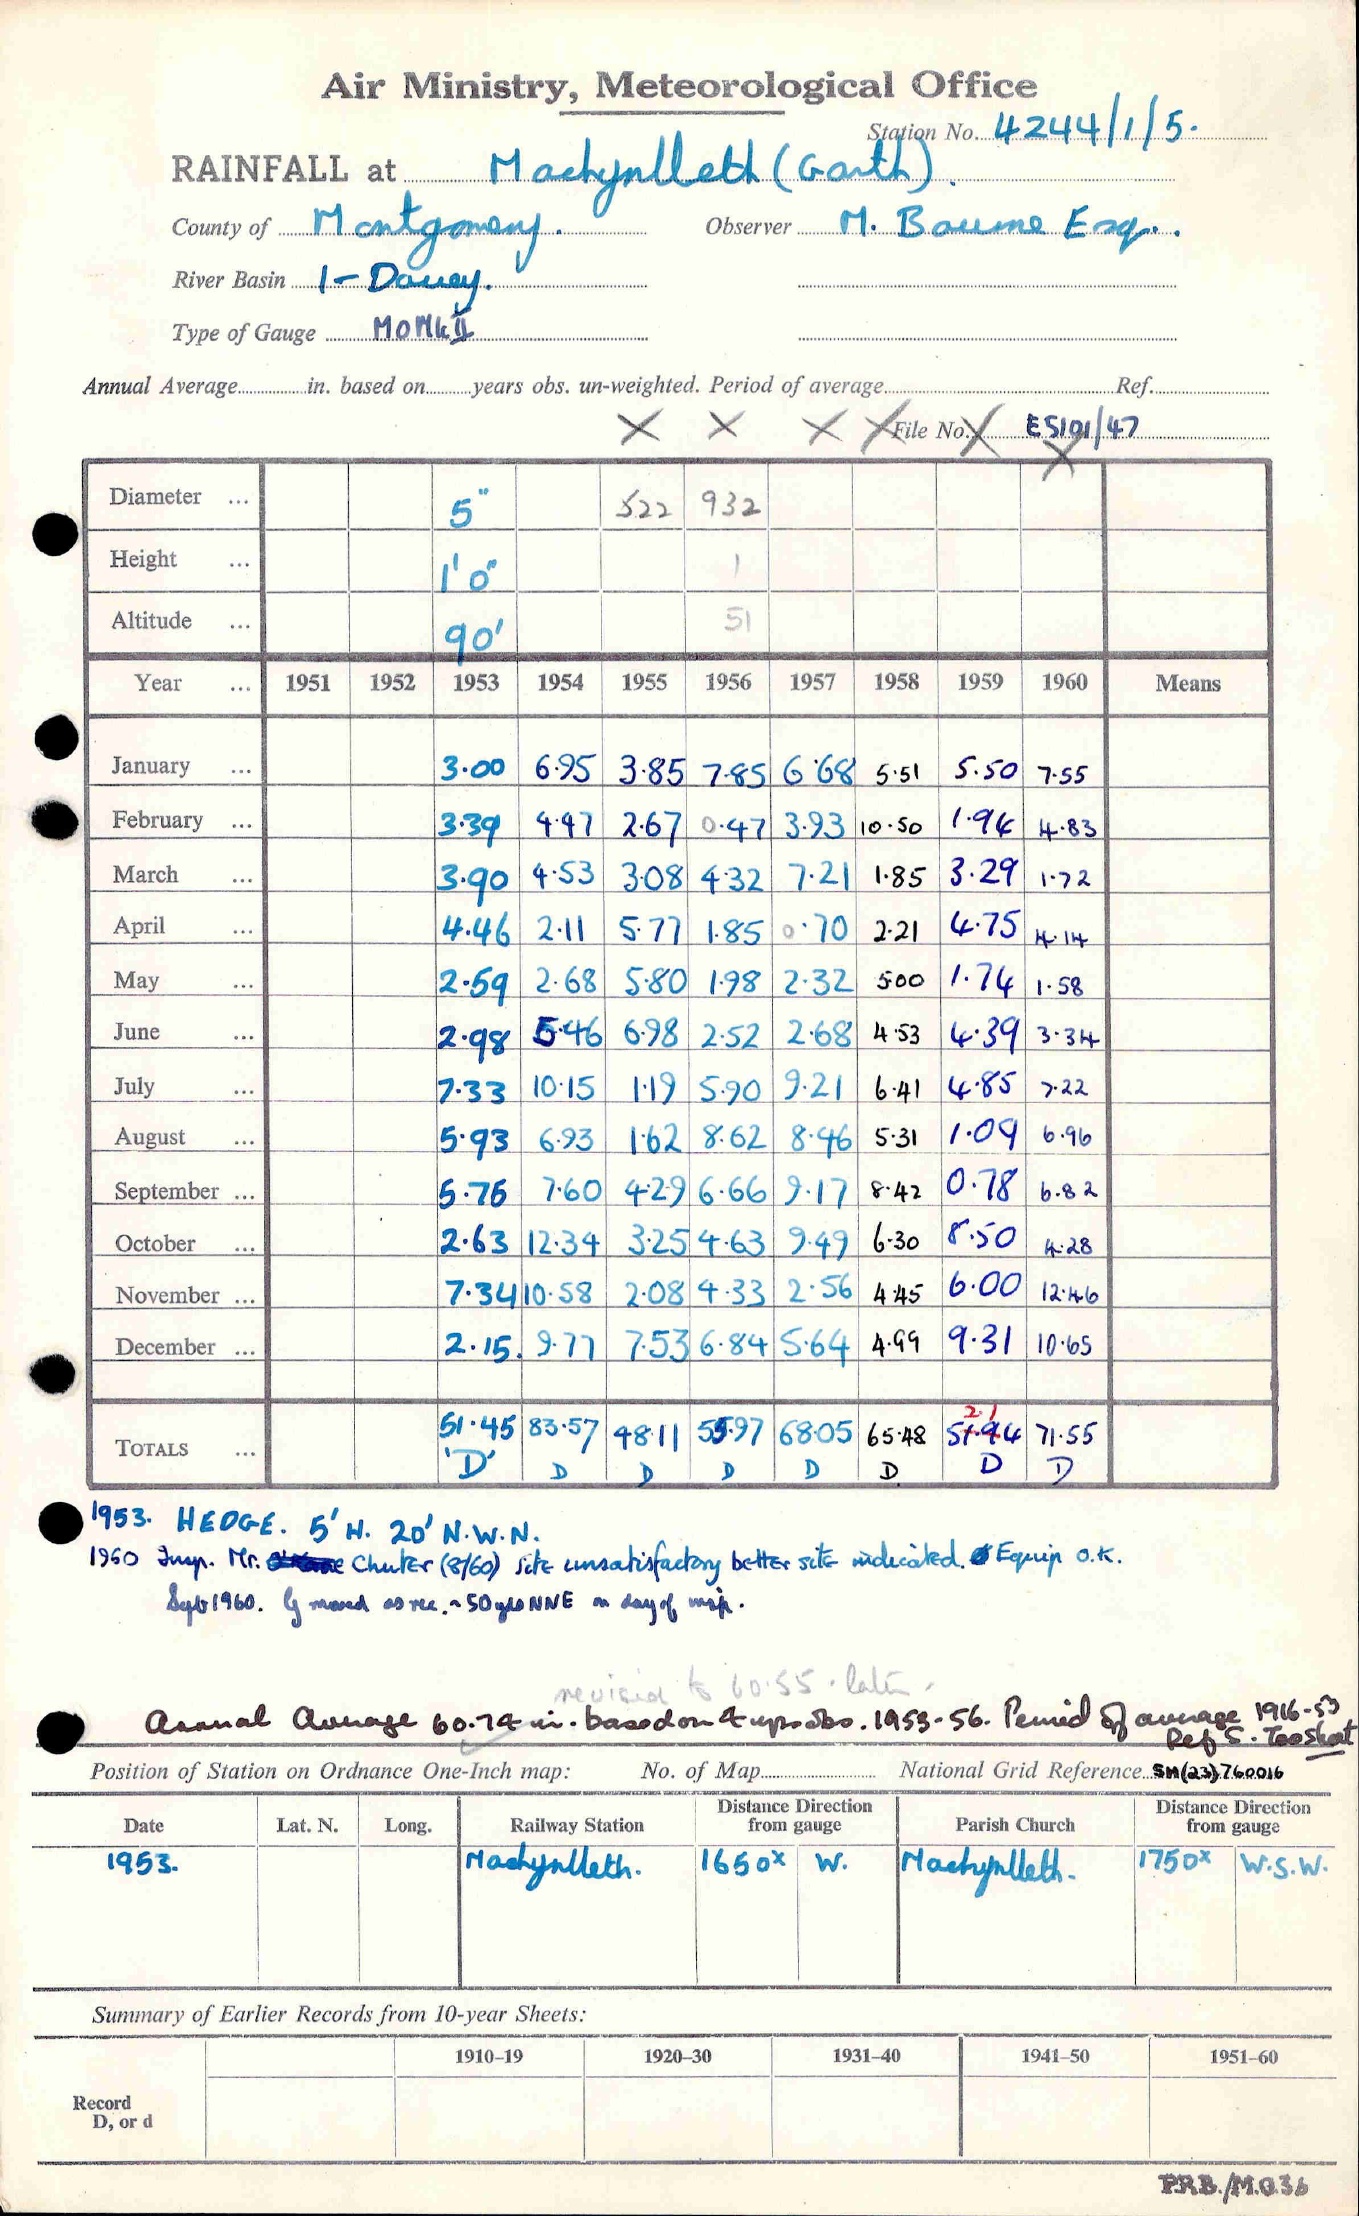 Air Ministry, Meteorological Office
Station No. 4244/1/5.
RAINFALL at Machynlleth (Garth).
County of Montgomery. Observer M. Bourne Esq.
River Basin 1 - Dovey.
Type of Gauge MO Mk II
Annual Average in. based on years obs. un-weighted. Period of average Ref.
X X X X File No. X E5101/47 X
Diameter ... 5" 522 932
Height ... 1' 0" 1
Altitude ... 90' 51
Year ... 1951 1952 1953 1954 1955 1956 1957 1958 1959 1960 Means
January ... 3.00 6.95 3.85 7.85 6.68 5.51 5.50 7.55
February ... 3.39 4.47 2.67 0.47 3.93 10.50 1.94 4.83
March ... 3.90 4.53 3.08 4.32 7.21 1.85 3.29 1.72
April ... 4.46 2.11 5.77 1.85 0.70 2.21 4.75 4.14
May ... 2.59 2.68 5.80 1.98 2.32 5.00 1.74 1.58
June ... 2.98 5.46 6.98 2.52 2.68 4.53 4.39 3.34
July ... 7.33 10.15 1.19 5.90 9.21 6.41 4.85 7.22
August ... 5.93 6.93 1.62 8.62 8.46 5.31 1.09 6.96
September ... 5.75 7.60 4.29 6.66 9.17 8.42 0.78 6.82
October ... 2.63 12.34 3.25 4.63 9.49 6.30 8.50 4.28
November ... 7.34 10.58 2.08 4.33 2.56 4.45 6.00 12.46
December ... 2.15. 9.77 7.53 6.84 5.64 4.99 9.31 10.65
2.1
TOTALS ... 51.45 83.57 48.11 55.97 68.05 65.48 51.94 71.55
'D' D D D D D D D
1953. HEDGE. 5' H. 20' N.W.N.
1960 Insp. Mr. Chuter (8/60) site unsatisfactory better site indicated. Equip O.K.
Sept 1960. G moved as rec. ~ 50 yds NNE on day of insp.
revised to 60.55. later.
Annual Average 60.74 in. based on 4 yrs obs. 1953-56. Period of average 1916-53
Ref S. Too Short
Position of Station on Ordnance One-Inch map: No. of Map National Grid Reference SH(23)760016
Date Lat. N. Long. Railway Station Distance Direction from gauge Parish Church Distance Direction from gauge
1953. Machynlleth. 1650x W. Machynlleth. 1750x W.S.W.
Summary of Earlier Records from 10-year Sheets:
1910–19 1920–30 1931–40 1941–50 1951–60
Record
D, or d
P.R.B./M.O.36